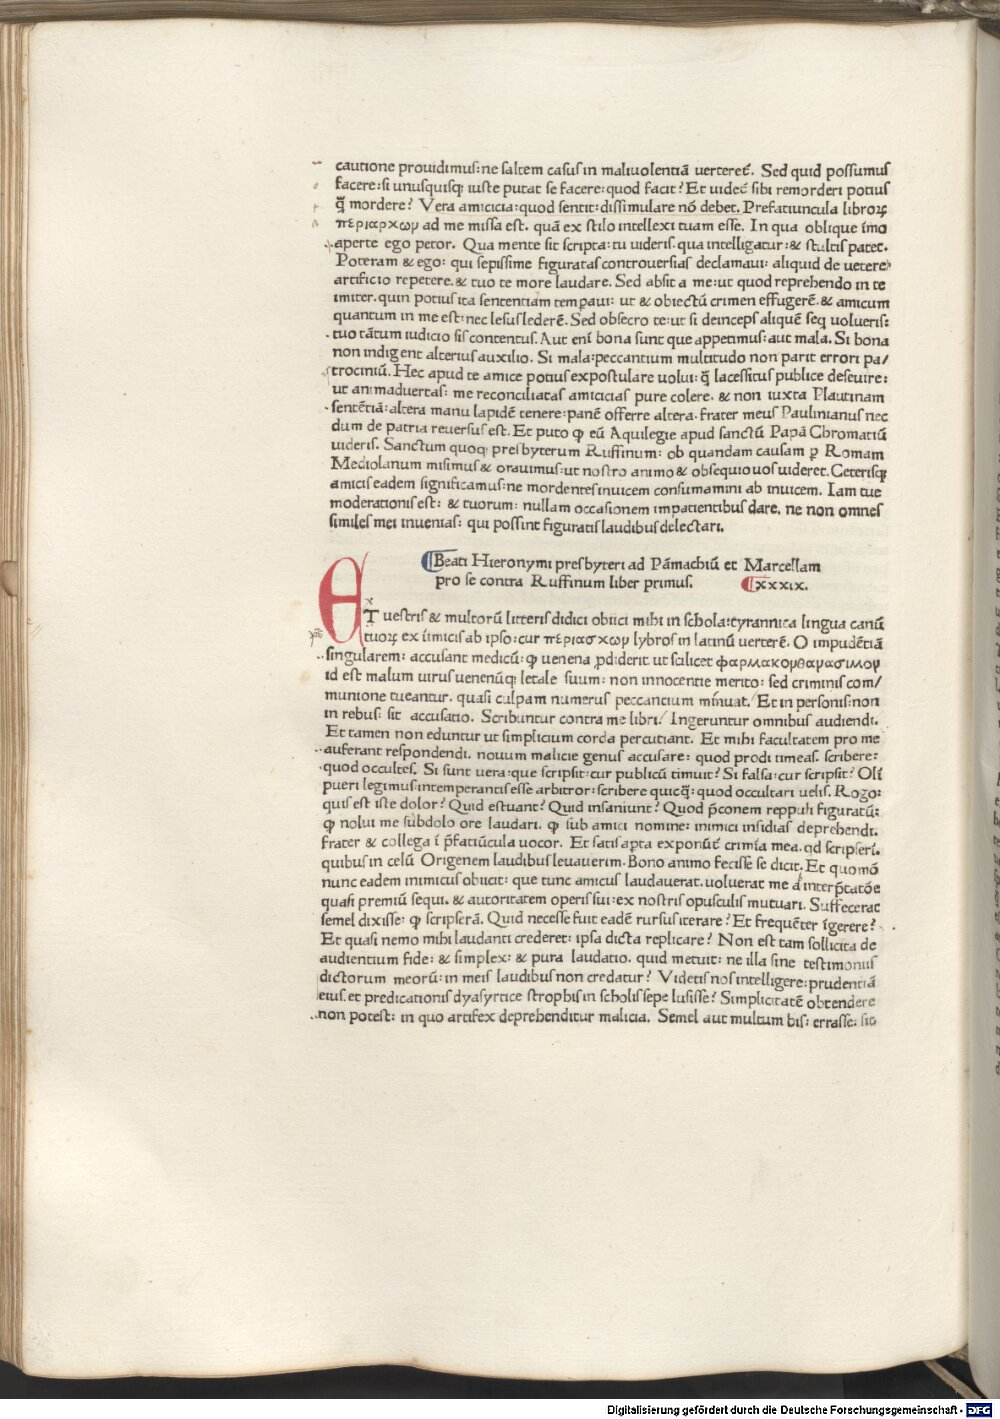 cautione prouidimus: ne saltem casus in maliuolentiā verteret̄. Sed quid possumus
facere: si unusquisq; iuste putat se facere: quod facit? Et uidet̄ sibi remorderi potius
q̄ mordere? Vera amicicia: quod sentit: dissimulare nō debet. Prefatiuncula libroꝝ
περιαρχων ad me missa est. quā ex stilo intellexi tuam esse. In qua oblique īmo
aperte ego petor. Qua mente sit scripta: tu uideris. qua intelligatur: & stultis patet.
Poteram & ego: qui sepissime figuratas controuersias declamaui: aliquid de uetere
artificio repetere. & tuo te more laudare. Sed absit a me: ut quod reprehendo in te
imiter. quin potius ita sententiam temperaui: ut & obiectū crimen effugerē. & amicum
quantum in me est: nec lesus lederē. Sed obsecro te: ut si deinceps aliquē seq uolueris:
tuo tātum iudicio sis contentus. Aut enī bona sunt que appetimus: aut mala. Si bona
non indigent alterius auxilio. Si mala: peccantium multitudo non parit errori pa/
trociniū. Hec apud te amice potius expostulare uolui: q̄ lacessitus publice deseuire:
ut animaduertas: me reconciliatas amicicias pure colere. & non iuxta Plautinam
sentētiā: altera manu lapidē tenere: panē offerre altera. frater meus Paulinianus nec
dum de patria reuersus est. Et puto ꝙ eū Aquilegie apud sanctū Papā Chromatiū
uideris. Sanctum quoq; presbyterum Ruffinum: ob quandam causam ꝑ Romam
Mediolanum misimus & orauimus: ut nostro animo & obsequio uos uideret. Ceterisq;
amicis eadem significamus: ne mordentes inuicem consumamini ab inuicem. Iam tue
moderationis est: & tuorum: nullam occasionem impatientibus dare. ne non omnes
similes mei inuenias: qui possint figuratis laudibus delectari.
Beati Hieronymi presbyteri ad Pāmachiū et Marcellam
pro se contra Ruffinum liber primus. xxxix.
ET uestris & multorū litteris didici obiici mihi in schola: tyrannica lingua canū
tuoꝝ ex īimicis ab ipso: cur περιασχων lybros in latinū verterē. O impudētiā
singularem: accusant medicū: ꝙ uenena ꝓdiderit ut scilicet φαρμακονθανασιμον
id est malum uirus uenenūq; letale suum: non innocentie merito: sed criminis com/
munione tueantur. quasi culpam numerus peccantium mīnuat. Et in personis: non
in rebus: sit accusatio. Scribuntur contra me libri. Ingeruntur omnibus audiendi.
Et tamen non eduntur ut simplicium corda percutiant. Et mihi facultatem pro me
auferant respondendi. nouum malicie genus accusare: quod prodi timeas. scribere:
quod occultes. Si sunt uera: que scripsit: cur publicū timuit? Si falsa: cur scripsit? Olī
pueri legimus: intemperantis esse arbitror: scribere quicq̄: quod occultari uelis. Rogo:
quis est iste dolor? Quid estuant? Quid insaniunt? Quod p̄conem reppuli figuratū:
ꝙ nolui me subdolo ore laudari. ꝙ sub amici nomine: inimici insidias deprehendi.
frater & collega ī p̄fatiūcula uocor. Et satis apta exponūt̄ crimīa mea. qd scripserī.
quibus in celū Origenem laudibus leuauerim. Bono animo fecisse se dicit. Et quomō
nunc eadem inimicus obiicit: que tunc amicus laudauerat. uoluerat me ā interp̄tatōe
quasi premiū sequi. & autoritatem operis sui: ex nostris opusculis mutuari. Suffecerat
semel dixisse: ꝙ scripserā. Quid necesse fuit eadē rursus iterare? Et frequēter īgerere?
Et quasi nemo mihi laudanti crederet: ipsa dicta replicare? Non est tam sollicita de
audientium fide: & simplex: & pura laudatio. quid metuit: ne illa sine testimoniis
dictorum meorū: in meis laudibus non credatur? Videtis nos intelligere: prudentiā
eius. et predicationis dyasyrtice strophis in scholis sepe lusisse? Simplicitatē obtendere
non potest: in quo artifex deprehenditur malicia. Semel aut multum bis: errasse: sit
Digitalisierung gefördert durch die Deutsche Forschungsgemeinschaft - DFG